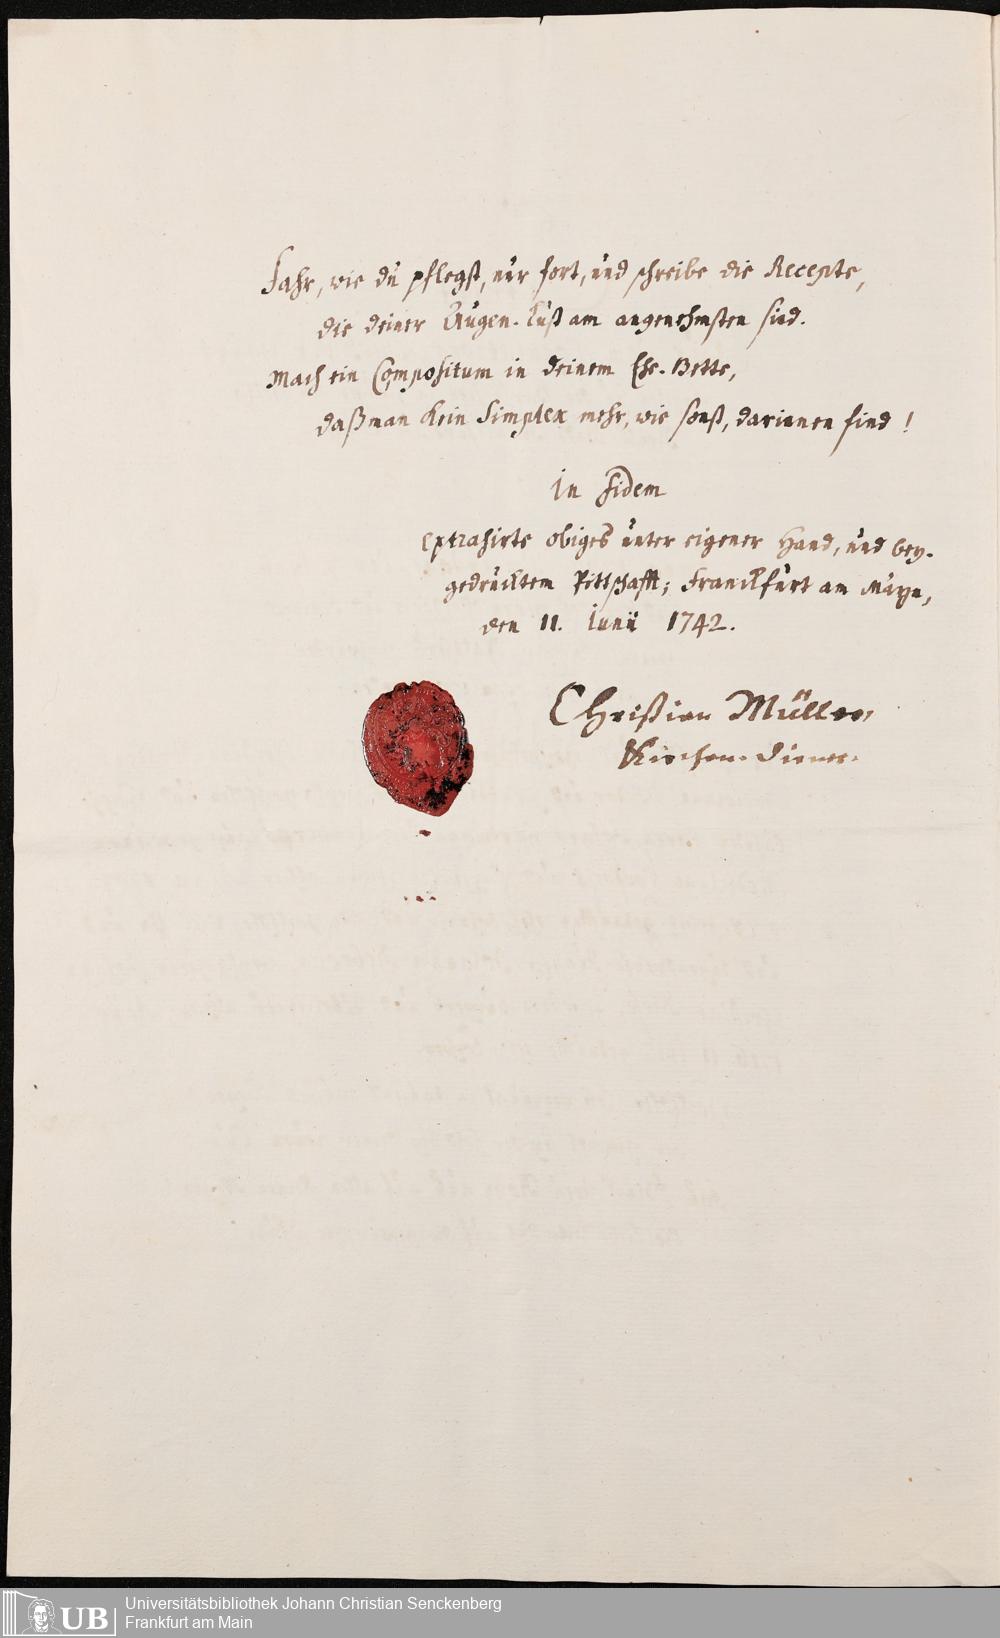 Fahr, wie du pflegst, nur fort, und schreibe die Recepte,
die deiner Augen-Lust am angenehmsten sind.
Mach ein Compositum in deinem Ehe-Bette,
daß man kein Simplex mehr, wie sonst, darinnen find!
In fidem
extrahirte obiges unter eigener Hand, und bey-
gedrucktem Pittschafft; Franckfurt am Mayn,
den 11. Iunii 1742.
Christian Müller,
Kirchen-Diener.
UB
Universitätsbibliothek Johann Christian Senckenberg
Frankfurt am Main